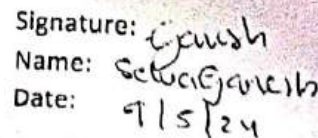 Signature: Ganesh
Name: SelvaGanesh
Date: 9/5/24